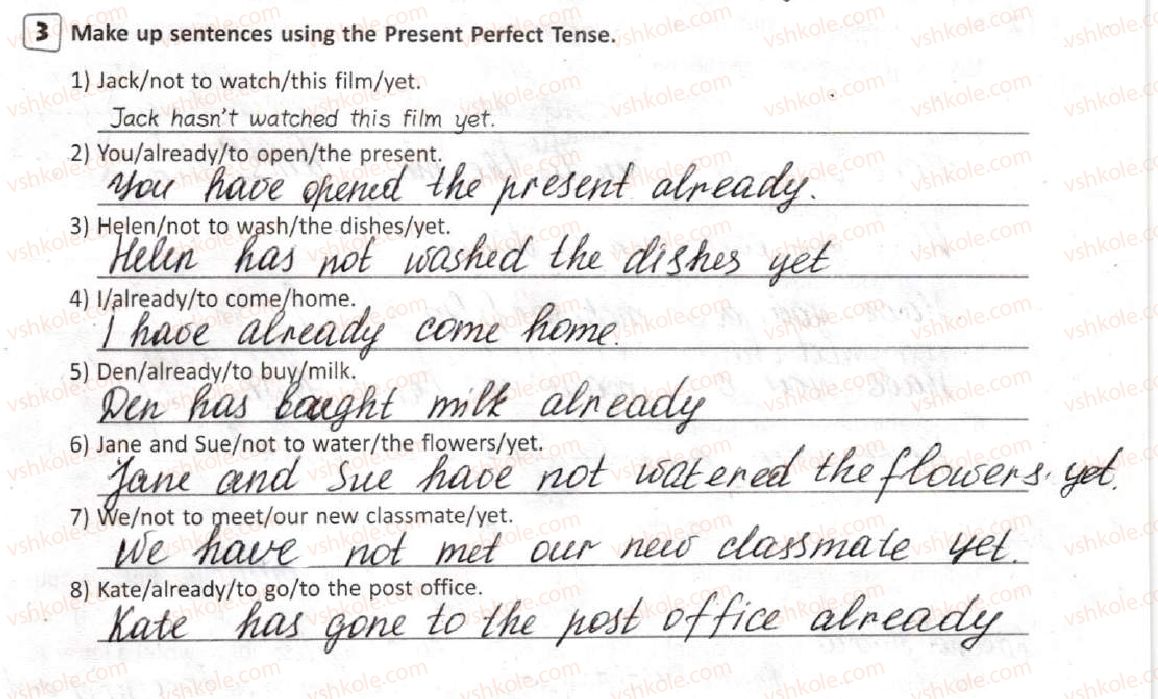 3 Make up sentences using the Present Perfect Tense.
1) Jack/not to watch/this film/yet.
Jack hasn't watched this film yet.
2) You/already/to open/the present.
You have opened the present already.
3) Helen/not to wash/the dishes/yet.
Helen has not washed the dishes yet
4) I/already/to come/home.
I have already come home.
5) Den/already/to buy/milk.
Den has bought milk already
6) Jane and Sue/not to water/the flowers/yet.
Jane and Sue have not watered the flowers. yet.
7) We/not to meet/our new classmate/yet.
We have not met our new classmate yet.
8) Kate/already/to go/to the post office.
Kate has gone to the post office already
vshkole.com